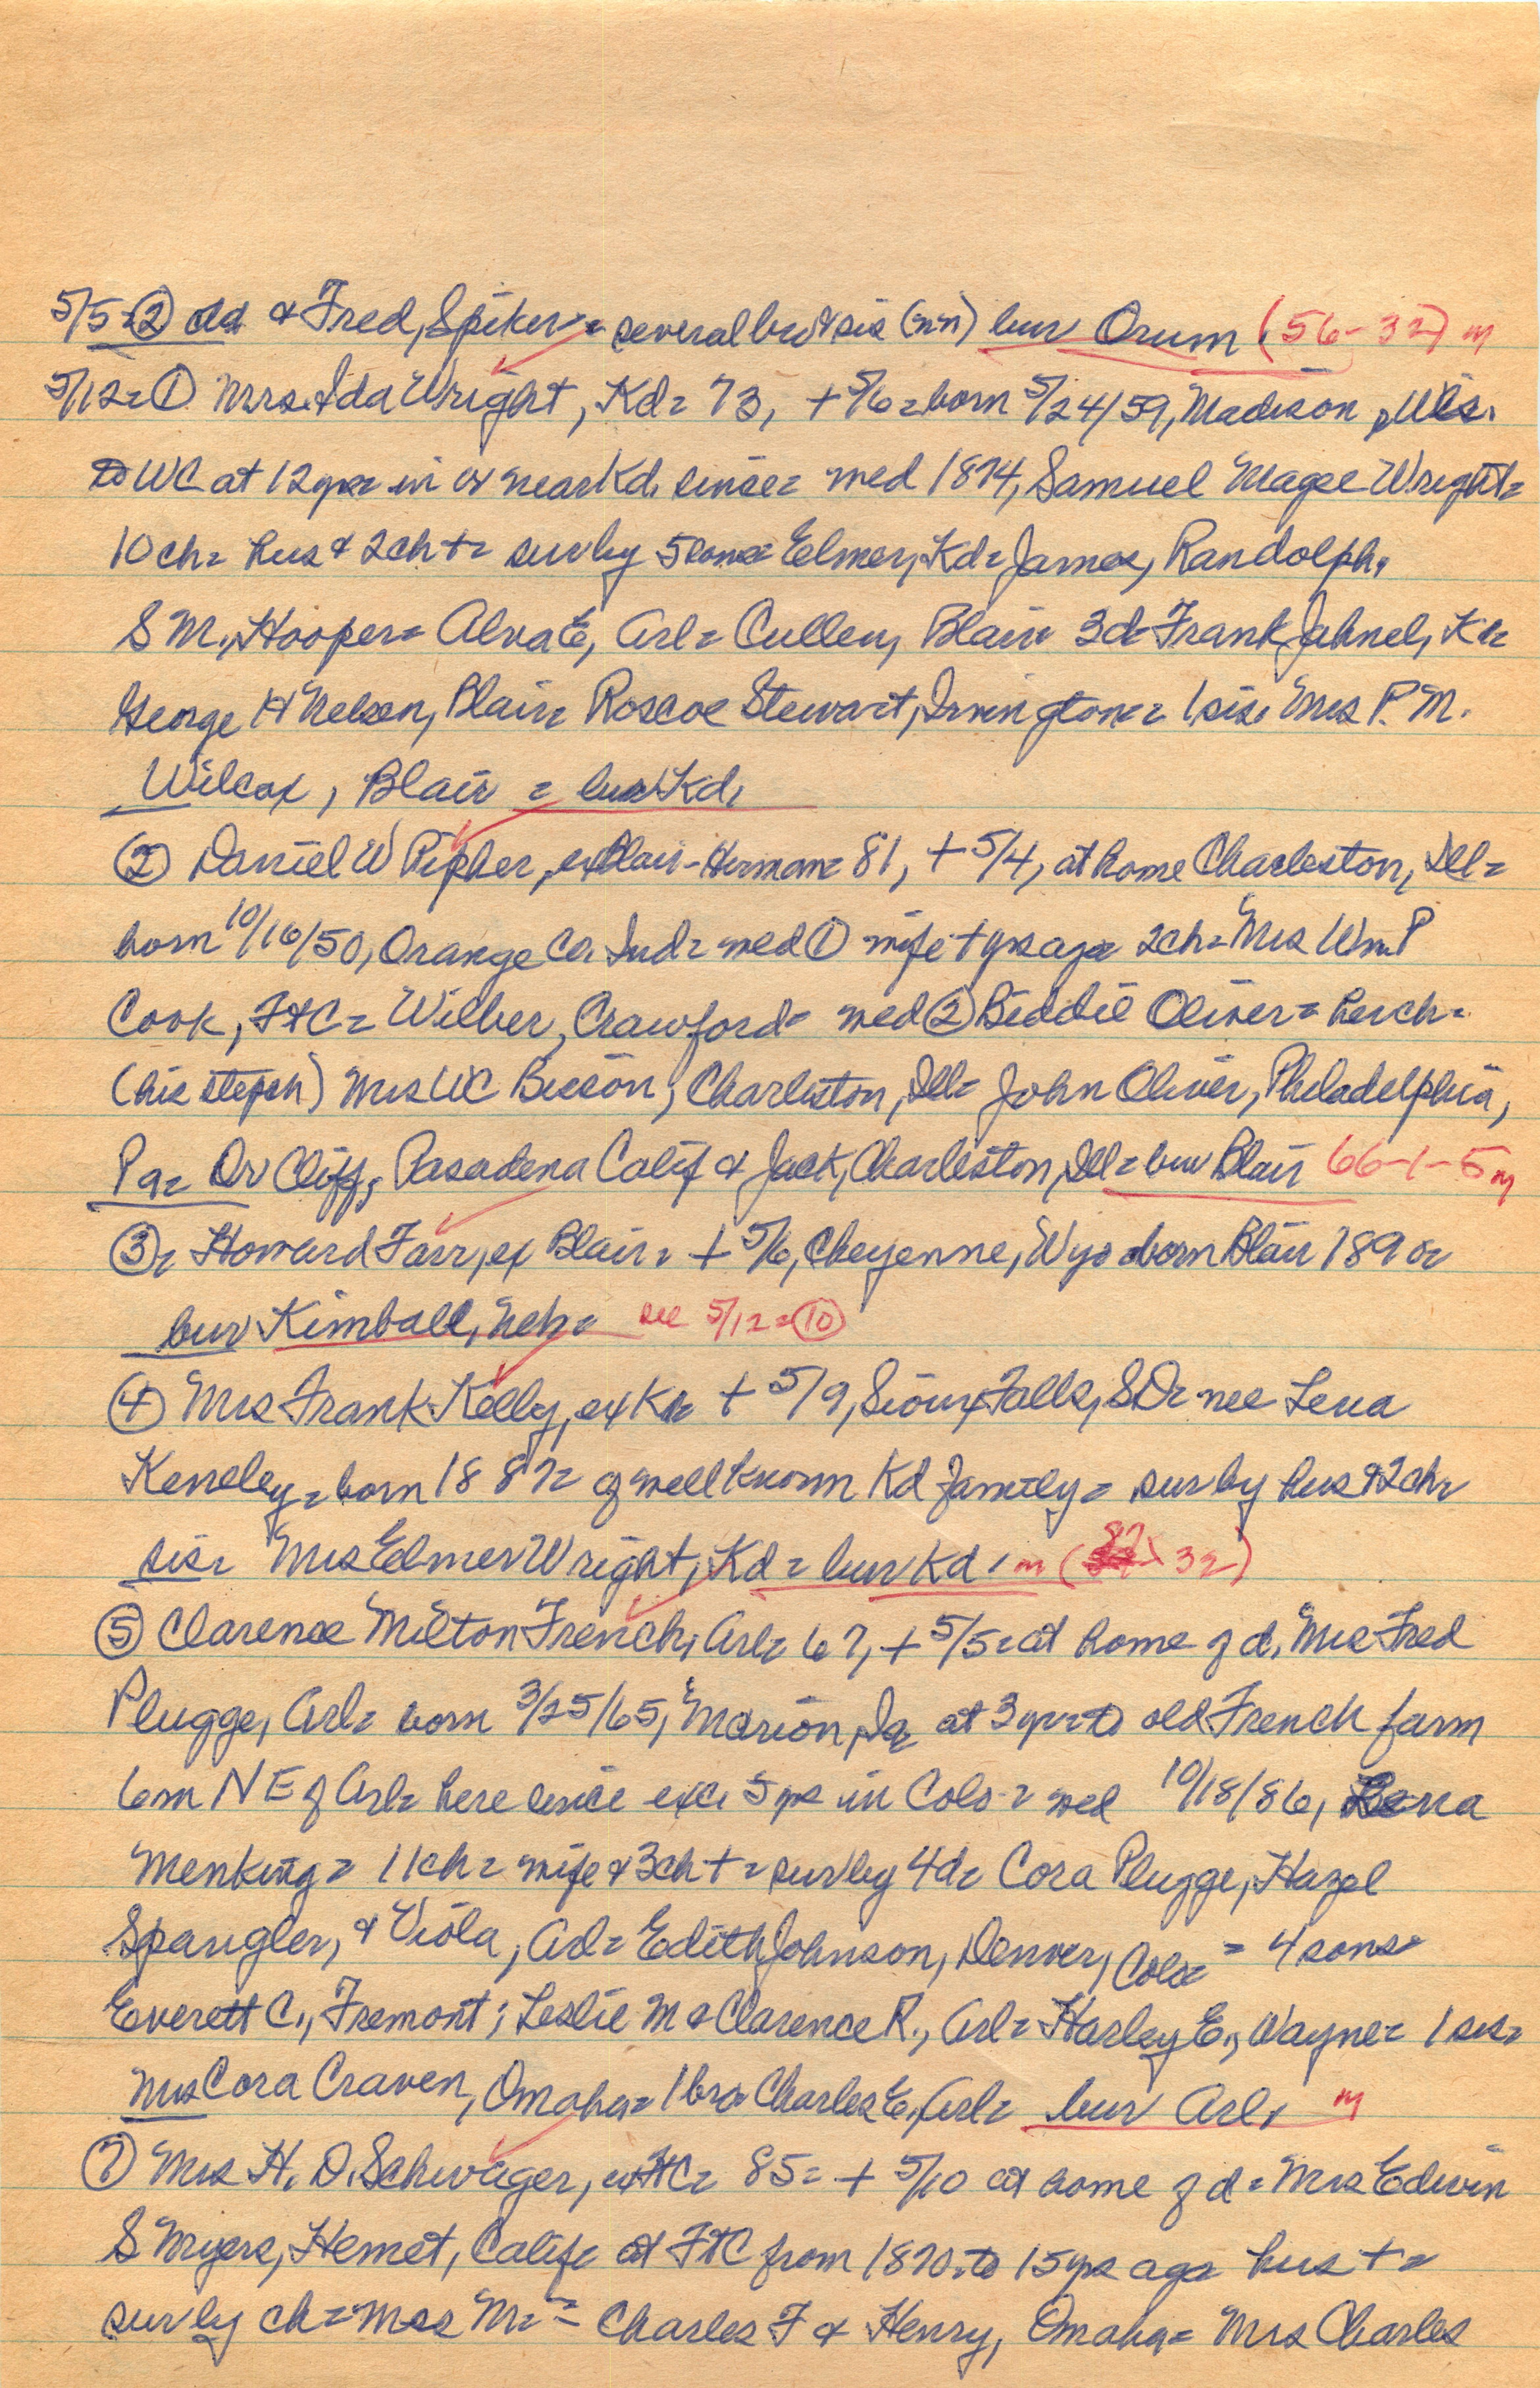 5/5=② Ed & Fred, Spiker= several bro & sis (nn) bur Orum (56-32) m
5/12=① Mrs. Ida Wright, Kd= 73, + 5/6= born 5/24/59, Madison, Wis.
to WC at 12yrs= in or near Kd. since= med 1874, Samuel Magee Wright=
10ch= hus & 2ch += surby 5sons= Elmer, Kd= James, Randolph.
S M., Hooper= Alva E, Arl= Cullen, Blair 3d= Frank Jahnel, Kn=
George H Nelsen, Blair= Roscoe Stewart, Irvington= 1 sis. Mrs P. M.
Wilcox, Blair = bur Kd.
② Daniel W Pipher, ex Blair-Herman= 81, + 5/4, at home Charleston, Ill=
born 10/16/50, Orange Co. Ind= med① wife + yrs ago= 2ch= Mrs Wm P
Cook, FtC= Wilber, Crawford= med② Biddie Oliver= her ch=
(his stepch) Mrs WC Bisson, Charleston, Ill= John Oliver, Philadelphia,
Pa= Dr Cliff, Pasadena Calif & Jack, Charleston, Ill= bur Blair 66-1-5 m
③= Howard Farr, ex Blair= + 5/6, Cheyenne, Wyo born Blair 1890=
bur Kimball, Neb= see 5/12=⑩
④ Mrs Frank Kelly, ex Kn= + 5/9, Sioux Falls, SD= nee Lena
Kenneley= born 1887= of well known Kd family= surby hus & 2ch=
sis= Mrs Elmer Wright, Kd= bur Kd. m ( 87 32)
⑤ Clarence Milton French, Arl= 67, + 5/5= at home of d. Mrs Fred
Plugge, Arl= born 3/25/65, Marion, Ia at 3yrs to old French farm
6m NE of Arl= here since exc. 5 yrs in Colo= med 10/18/86, Lena
Menking= 11ch= wife & 3ch += surby 4d= Cora Plugge, Hazel
Spangler, & Viola, Arl= Edith Johnson, Denver, Colo= = 4 sons=
Everett C., Fremont; Leslie M & Clarence R., Arl= Harley E., Wayne= 1 sis=
Mrs Cora Craven, Omaha= 1 bro= Charles E, Arl= bur Arl. m
⑦ Mrs H. D. Schwager, ex FtC= 85= + 5/10 at home of d= Mrs Edwin
S Myers, Hemet, Calif= at FtC from 1870 to 15yrs ago= hus +=
surby ch= Mrs M= = Charles F & Henry, Omaha= Mrs Charles